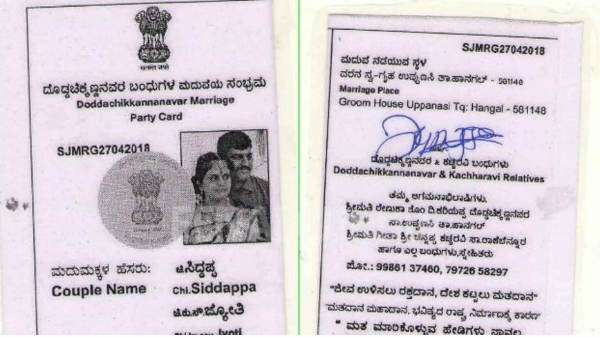 ದೊಡ್ಡಚಿಕ್ಕಣ್ಣನವರ ಬಂಧುಗಳ ಮದುವೆಯ ಸಂಭ್ರಮ
Doddachikkannanavar Marriage
Party Card
SJMRG27042018
ಮದುಮಕ್ಕಳ ಹೆಸರು:
Couple Name
ಚಿ.ಸಿದ್ದಪ್ಪ
Chi.Siddappa
ಚಿ.ಕುಸೌ.ಜ್ಯೋತಿ
Jyoti
SJMRG27042018
ಮದುವೆ ನಡೆಯುವ ಸ್ಥಳ
ವರನ ಸ್ವ-ಗೃಹ ಉಪ್ಪುಣಸಿ ತಾ.ಹಾನಗಲ್ - 581148
Marriage Place
Groom House Uppanasi Tq: Hangal - 581148
ದೊಡ್ಡಚಿಕ್ಕಣ್ಣನವರ & ಕಚ್ಚರವಿ ಬಂಧುಗಳು
Doddachikkannanavar & Kachharavi Relatives
ತಮ್ಮ ಆಗಮನಾಭಿಲಾಷಿಗಳು.
ಶ್ರೀಮತಿ ರೇಣುಕಾ ಕೋಂ ದಿ ಕರಿಯಪ್ಪ ದೊಡ್ಡಚಿಕ್ಕಣ್ಣನವರ
ಸಾ.ಉಪ್ಪುಣಸಿ ತಾ.ಹಾನಗಲ್
ಶ್ರೀಮತಿ ಗೀತಾ ಶ್ರೀ ಚನ್ನಪ್ಪ ಕಚ್ಚರವಿ ಸಾ.ರಾಣೆಬೆನ್ನೂರ
ಹಾಗೂ ಎಲ್ಲ ಬಂಧುಗಳು,ಸ್ನೇಹಿತರು
ಪೋ.: 99861 37460, 79726 58297
"ಜೀವ ಉಳಿಸಲು ರಕ್ತದಾನ, ದೇಶ ಕಟ್ಟಲು ಮತದಾನ"
"ಮತದಾನ ಮಹಾದಾನ, ಭವಿಷ್ಯದ ರಾಷ್ಟ್ರ ನಿರ್ಮಾಣಕ್ಕೆ ಕಾರಣ"
" ಮತ ಮಾರಿಕೊಳ್ಳುವ ಹೇಡಿಗಳು ನಾವಲ್ಲ